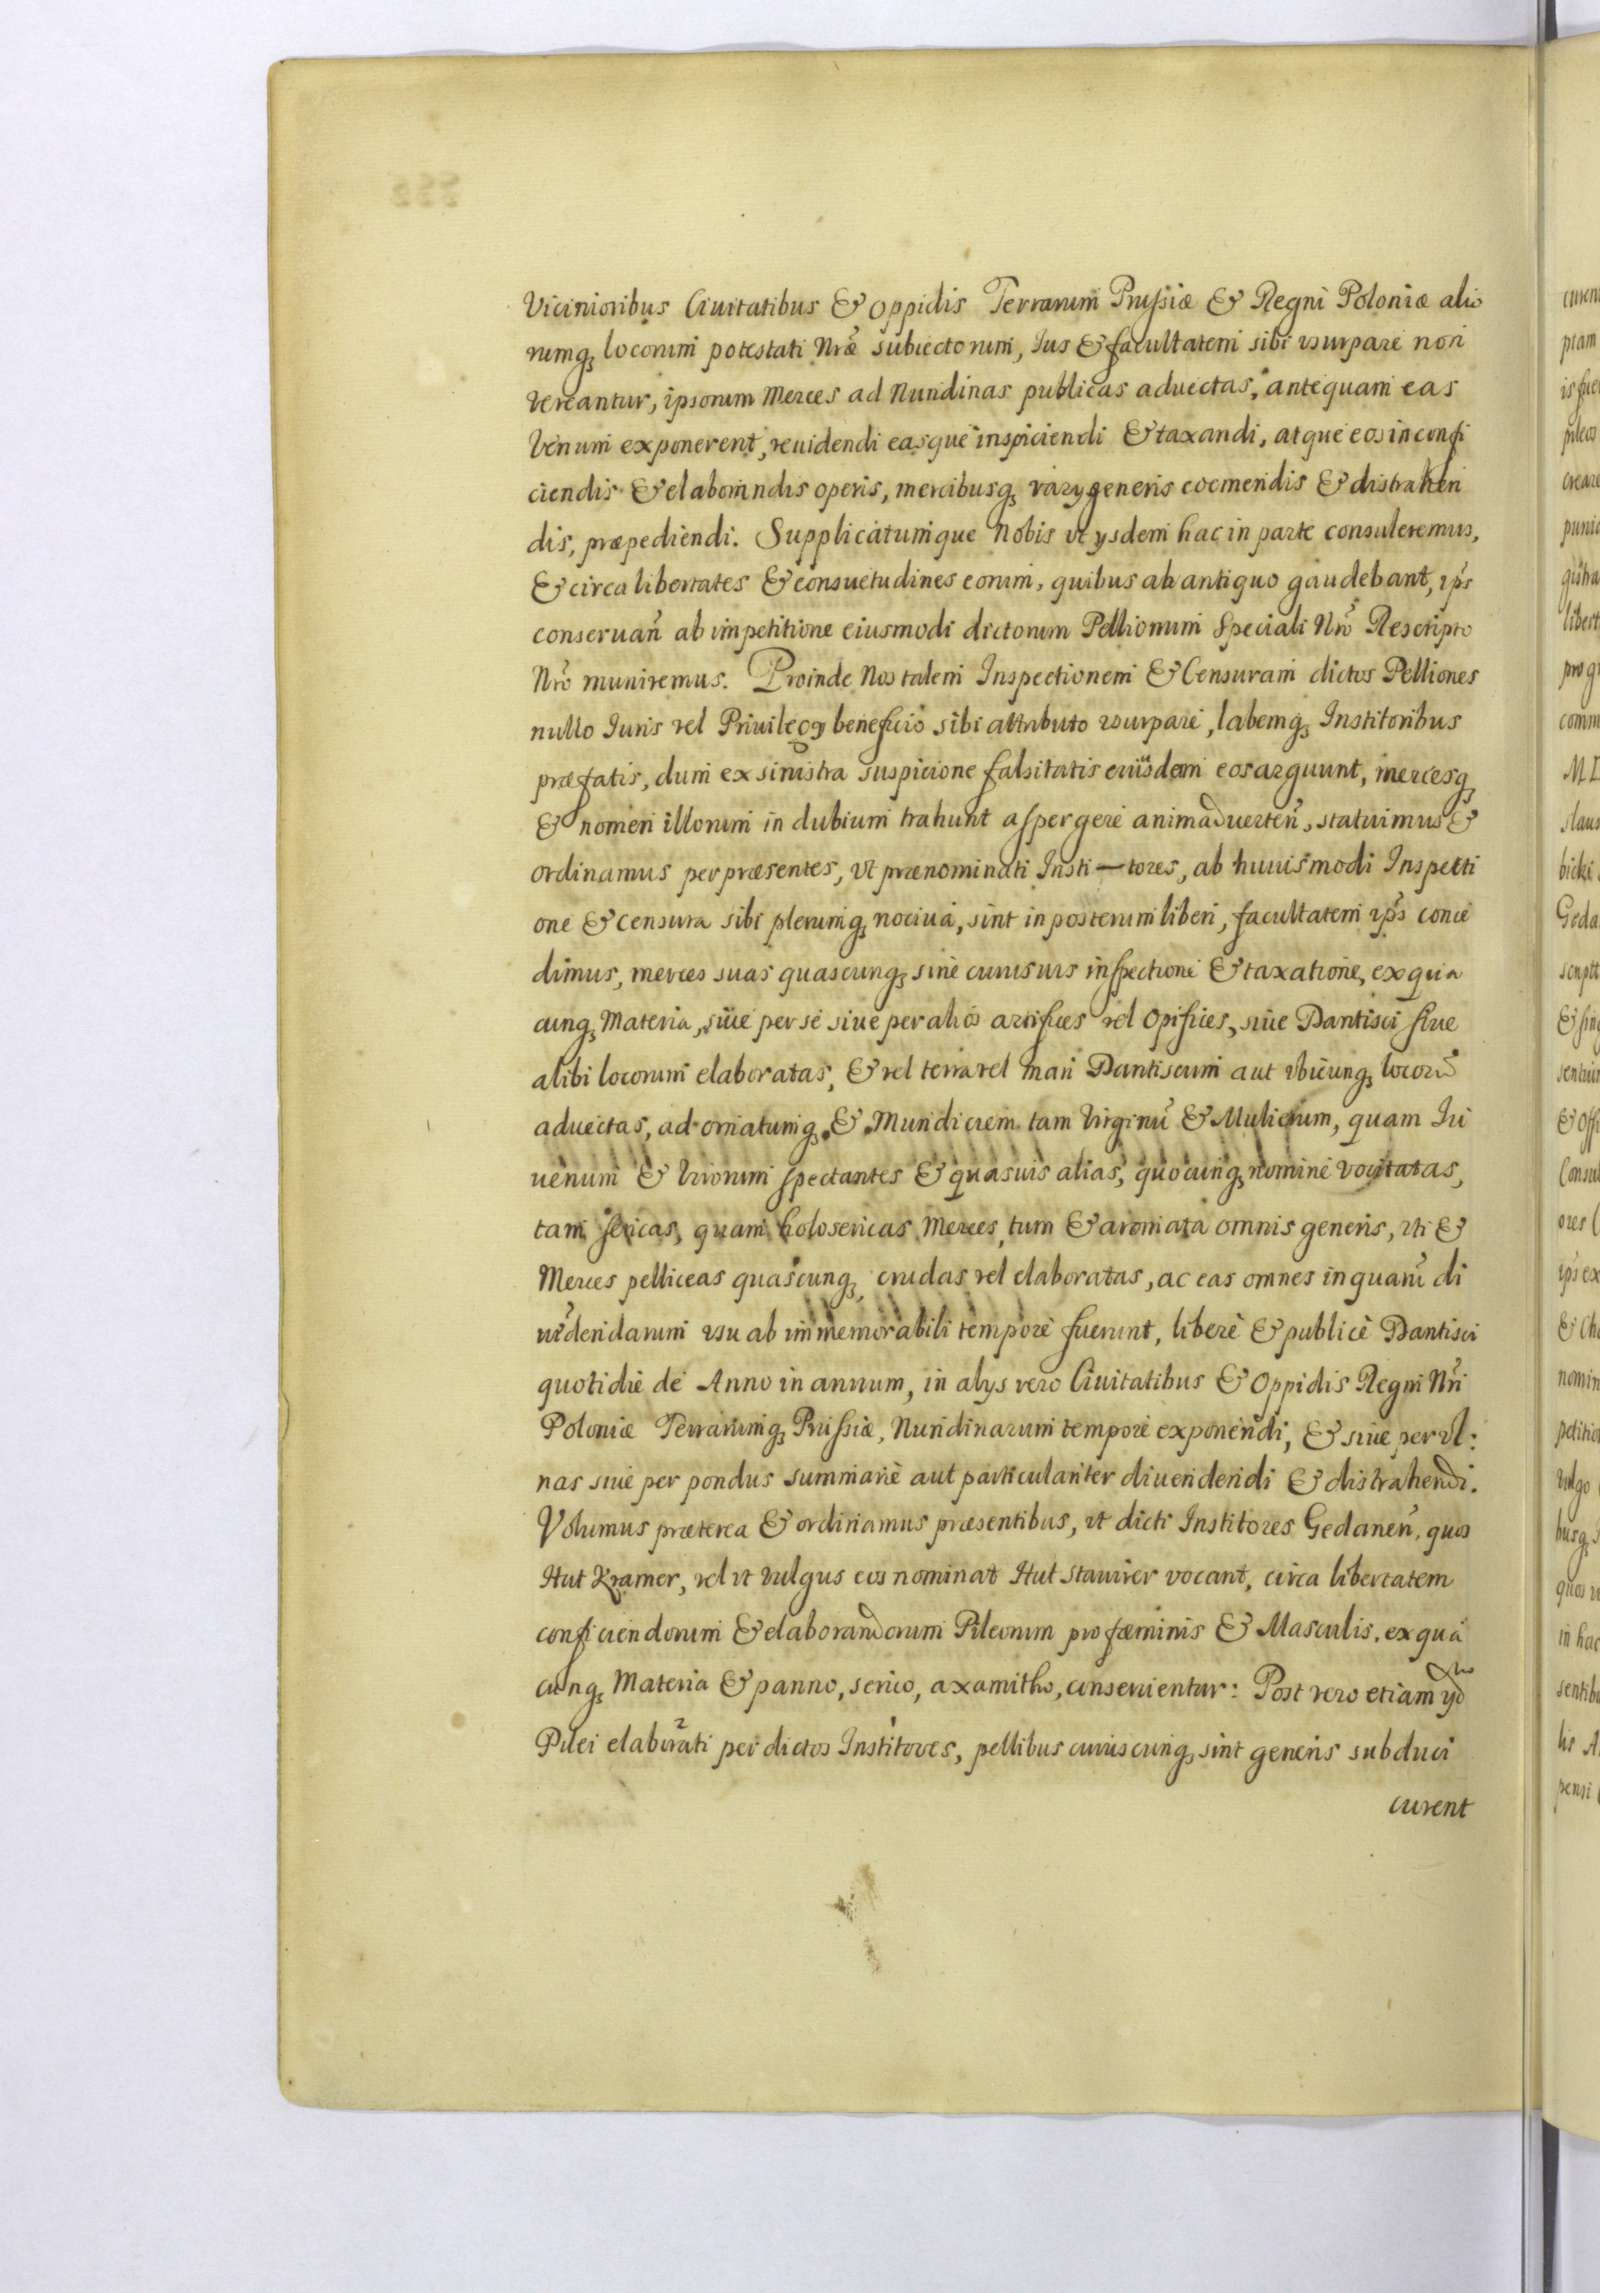 Vicinioribus Ciuitatibus & Oppidis Terrarum Prussiæ & Regni Poloniæ alio
rumq3 locorum potestati Nræ subiectorum, Ius & facultatem sibi vsurpare non
vereantur, ipsorum Merces ad Nundinas publicas aduectas, antequam eas
Venum exponerent, reuidendi easque inspiciendi & taxandi, atque eos in confi
ciendis & elaborandis operis, mercibusq3 varÿ generis coemendis & distrahen
dis, præpediendi. Supplicatumque Nobis vt ysdem hac in parte consuleremus,
& circa libertates & consuetudines eorum, quibus ab antiquo gaudebant, ips
conseruan ab impetitione eiusmodi dictorum Pellionum Speciali Nro Rescripto
Nro muniremus. Proinde Nos talem Inspectionem & Censuram dictos Pelliones
nullo Iuris vel Priuilegÿ beneficio sibi attributo vsurpare, labemq3 Institoribus
præfatis, dum ex sinistra suspicione falsitatis eiusdem eos arguunt, mercesq3
& nomen illorum in dubium trahunt aspergere animaduerten, statuimus &
ordinamus per præsentes, vt prænominati Insti—tores, ab huiusmodi Inspecti
one & Censura sibi plerumq3 nociua, sint in posterum liberi, facultatem ips conce
dimus, merces suas quascunq3 sine cuiusuis inspectione & taxatione, ex qua
cunq3 Materia, siue per se siue per alios artifices vel Opifices, siue Dantisci siue
alibi locorum elaboratas, & vel terra vel mari Dantiscum aut vbicunq3 locorũ
aduectas, ad ornatumq3 & Mundiciem tam Virginũ & Mulierum, quam Iu
uenum & Virorum spectantes & quasuis alias, quocunq3 nomine vocitatas,
tam sericas, quam holosericas Merces, tum & aromata omnis generis, vti &
Merces pelliceas quascunq3, crudas vel elaboratas, ac eas omnes in quarũ di
uẽdendarum vsu ab immemorabili tempore fuerunt, liberè & publicè Dantisci
quotidie de Anno in annum, in alÿs vero Ciuitatibus & Oppidis Regni Nri
Poloniæ Terrarumq3 Prussiæ, Nundinarum tempore exponendi, & siue per vl:
nas siue per pondus summariè aut particulariter diuendendi & distrahendi.
Volumus præterea & ordinamus præsentibus, vt dicti Institores Gedanen, quos
Hut Kramer, vel vt vulgus eos nominat Hut Stauirer vocant, circa libertatem
conficiendorum & elaborandorum Pileorum pro fæminis & Masculis, ex qua
cunq3 Materia & panno, serico, axamitho, conseruentur: Post vero etiam yd
Pilei elaborati per dictos Institores, pellibus cuiuscunq3 sint generis subduci
curent